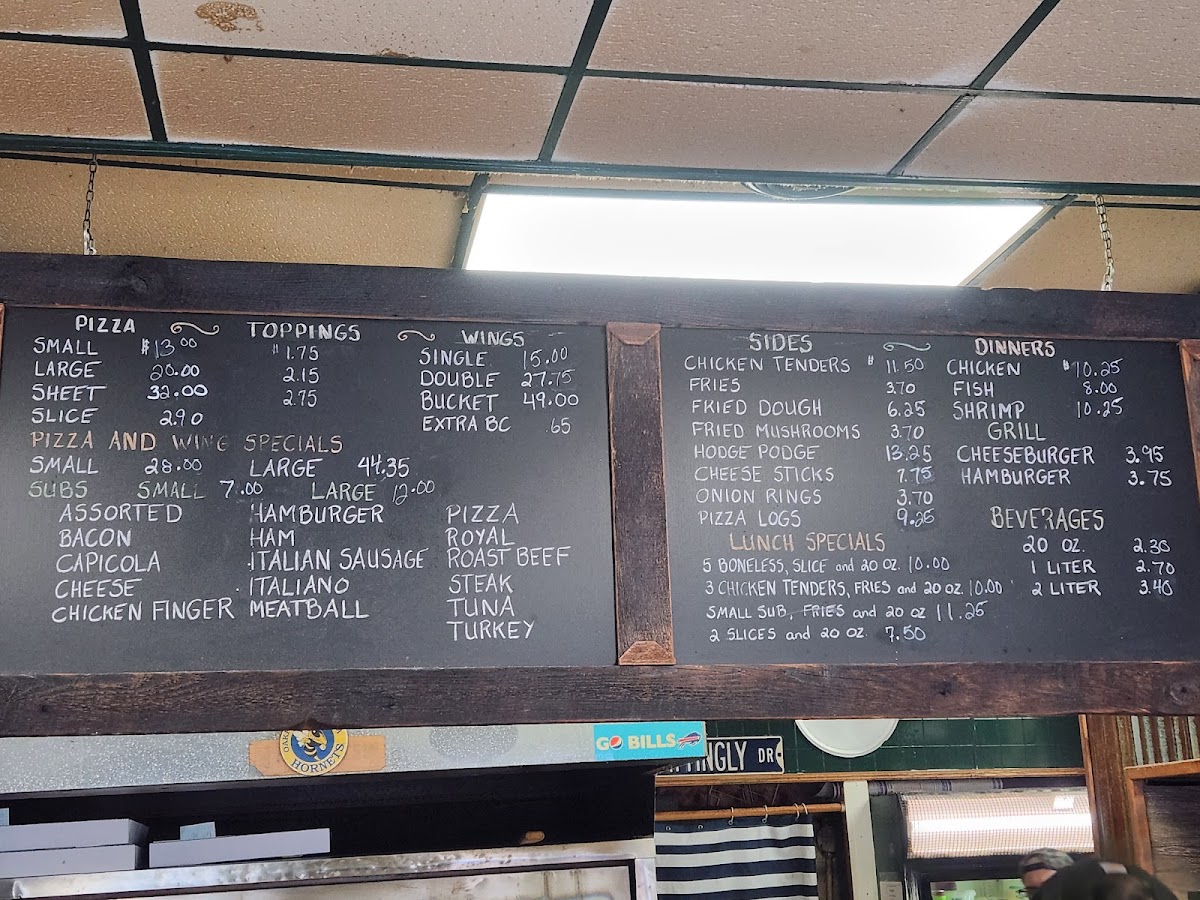 PIZZA TOPPINGS WINGS
SMALL $13.00 $1.75 SINGLE 15.00
LARGE 20.00 2.15 DOUBLE 27.75
SHEET 32.00 2.75 BUCKET 49.00
SLICE 2.90 EXTRA BC .65
PIZZA AND WING SPECIALS
SMALL 28.00 LARGE 44.35
SUBS SMALL 7.00 LARGE 12.00
ASSORTED HAMBURGER PIZZA
BACON HAM ROYAL
CAPICOLA ITALIAN SAUSAGE ROAST BEEF
CHEESE ITALIANO STEAK
CHICKEN FINGER MEATBALL TUNA
TURKEY
SIDES
CHICKEN TENDERS $11.50
FRIES 3.70
FRIED DOUGH 6.25
FRIED MUSHROOMS 3.70
HODGE PODGE 13.25
CHEESE STICKS 7.75
ONION RINGS 3.70
PIZZA LOGS 9.25
LUNCH SPECIALS
5 BONELESS, SLICE and 20 OZ. 10.00
3 CHICKEN TENDERS, FRIES and 20 OZ. 10.00
SMALL SUB, FRIES and 20 OZ 11.25
2 SLICES and 20 OZ. 7.50
DINNERS
CHICKEN $10.25
FISH 8.00
SHRIMP 10.25
GRILL
CHEESEBURGER 3.95
HAMBURGER 3.75
BEVERAGES
20 OZ. 2.30
1 LITER 2.70
2 LITER 3.40
HORNETS
GO BILLS
DR